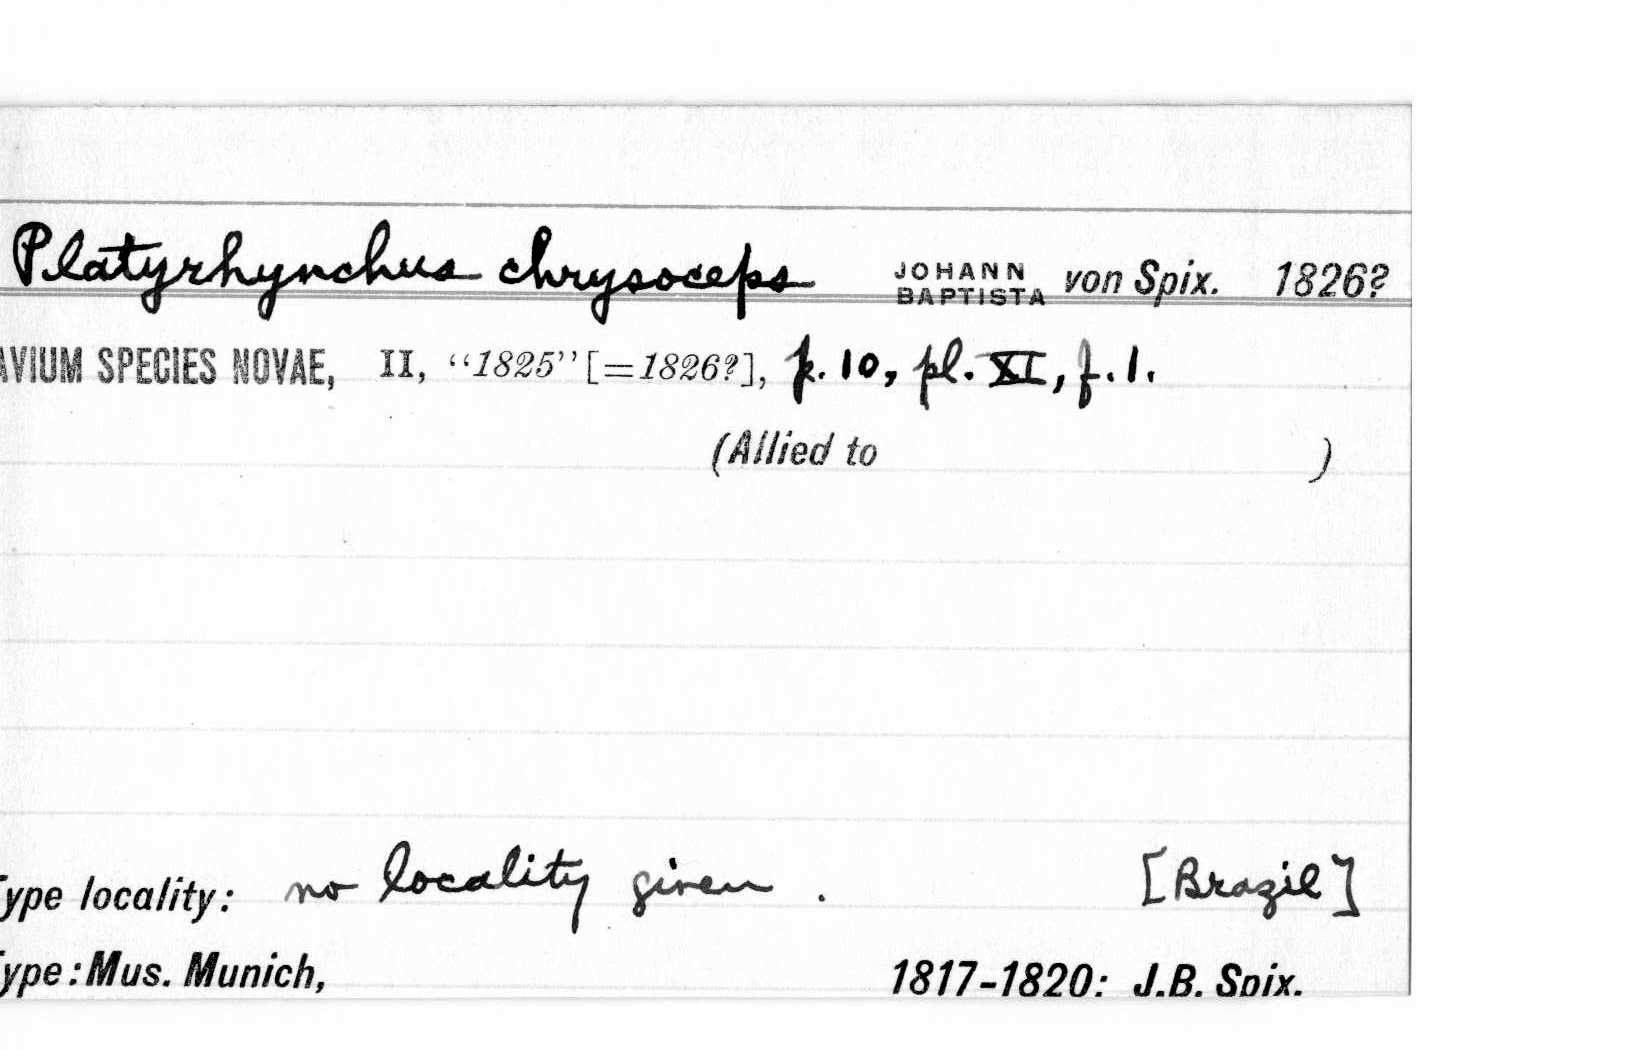 Platyrhynchus chrysoceps JOHANN BAPTISTA von Spix. 1826?
AVIUM SPECIES NOVAE, II, “1825” [=1826?], p. 10, pl. XI, f. 1.
(Allied to )
Type locality: no locality given. [Brazil]
Type: Mus. Munich, 1817-1820: J.B. Spix.